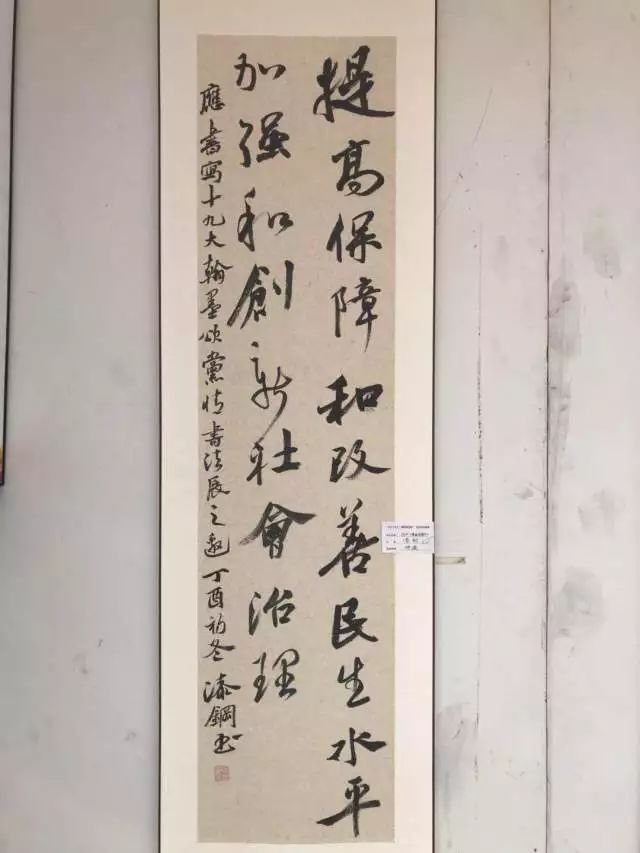 提高保障和改善民生水平
加强和創新社會治理
應書寫十九大翰墨颂黨情書法展之邀丁酉初冬漆鋼书